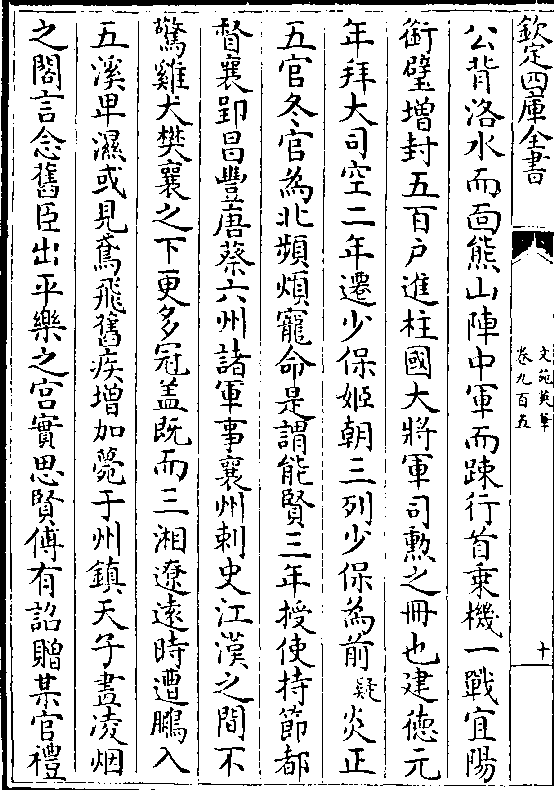 欽定四庫全書
文苑英華
卷九百五
十
公背洛水而面熊山陣中軍而踈行首乗機一戰宜陽
銜璧増封五百户進柱國大將軍司勲之冊也建徳元
年拜大司空二年遷少保姬朝三列少保為前疑炎正
五官冬官為北頻煩寵命是謂能賢三年授使持節都
督襄郢昌豐唐蔡六州諸軍事襄州刺史江漢之間不
驚雞犬樊襄之下更多冠盖既而三湘遼遠時遭鵩入
五溪卑濕或見鳶飛舊疾増加薨于州鎮天子晝凌烟
之閣言念舊臣出平樂之宫實思賢傅有詔贈某官禮